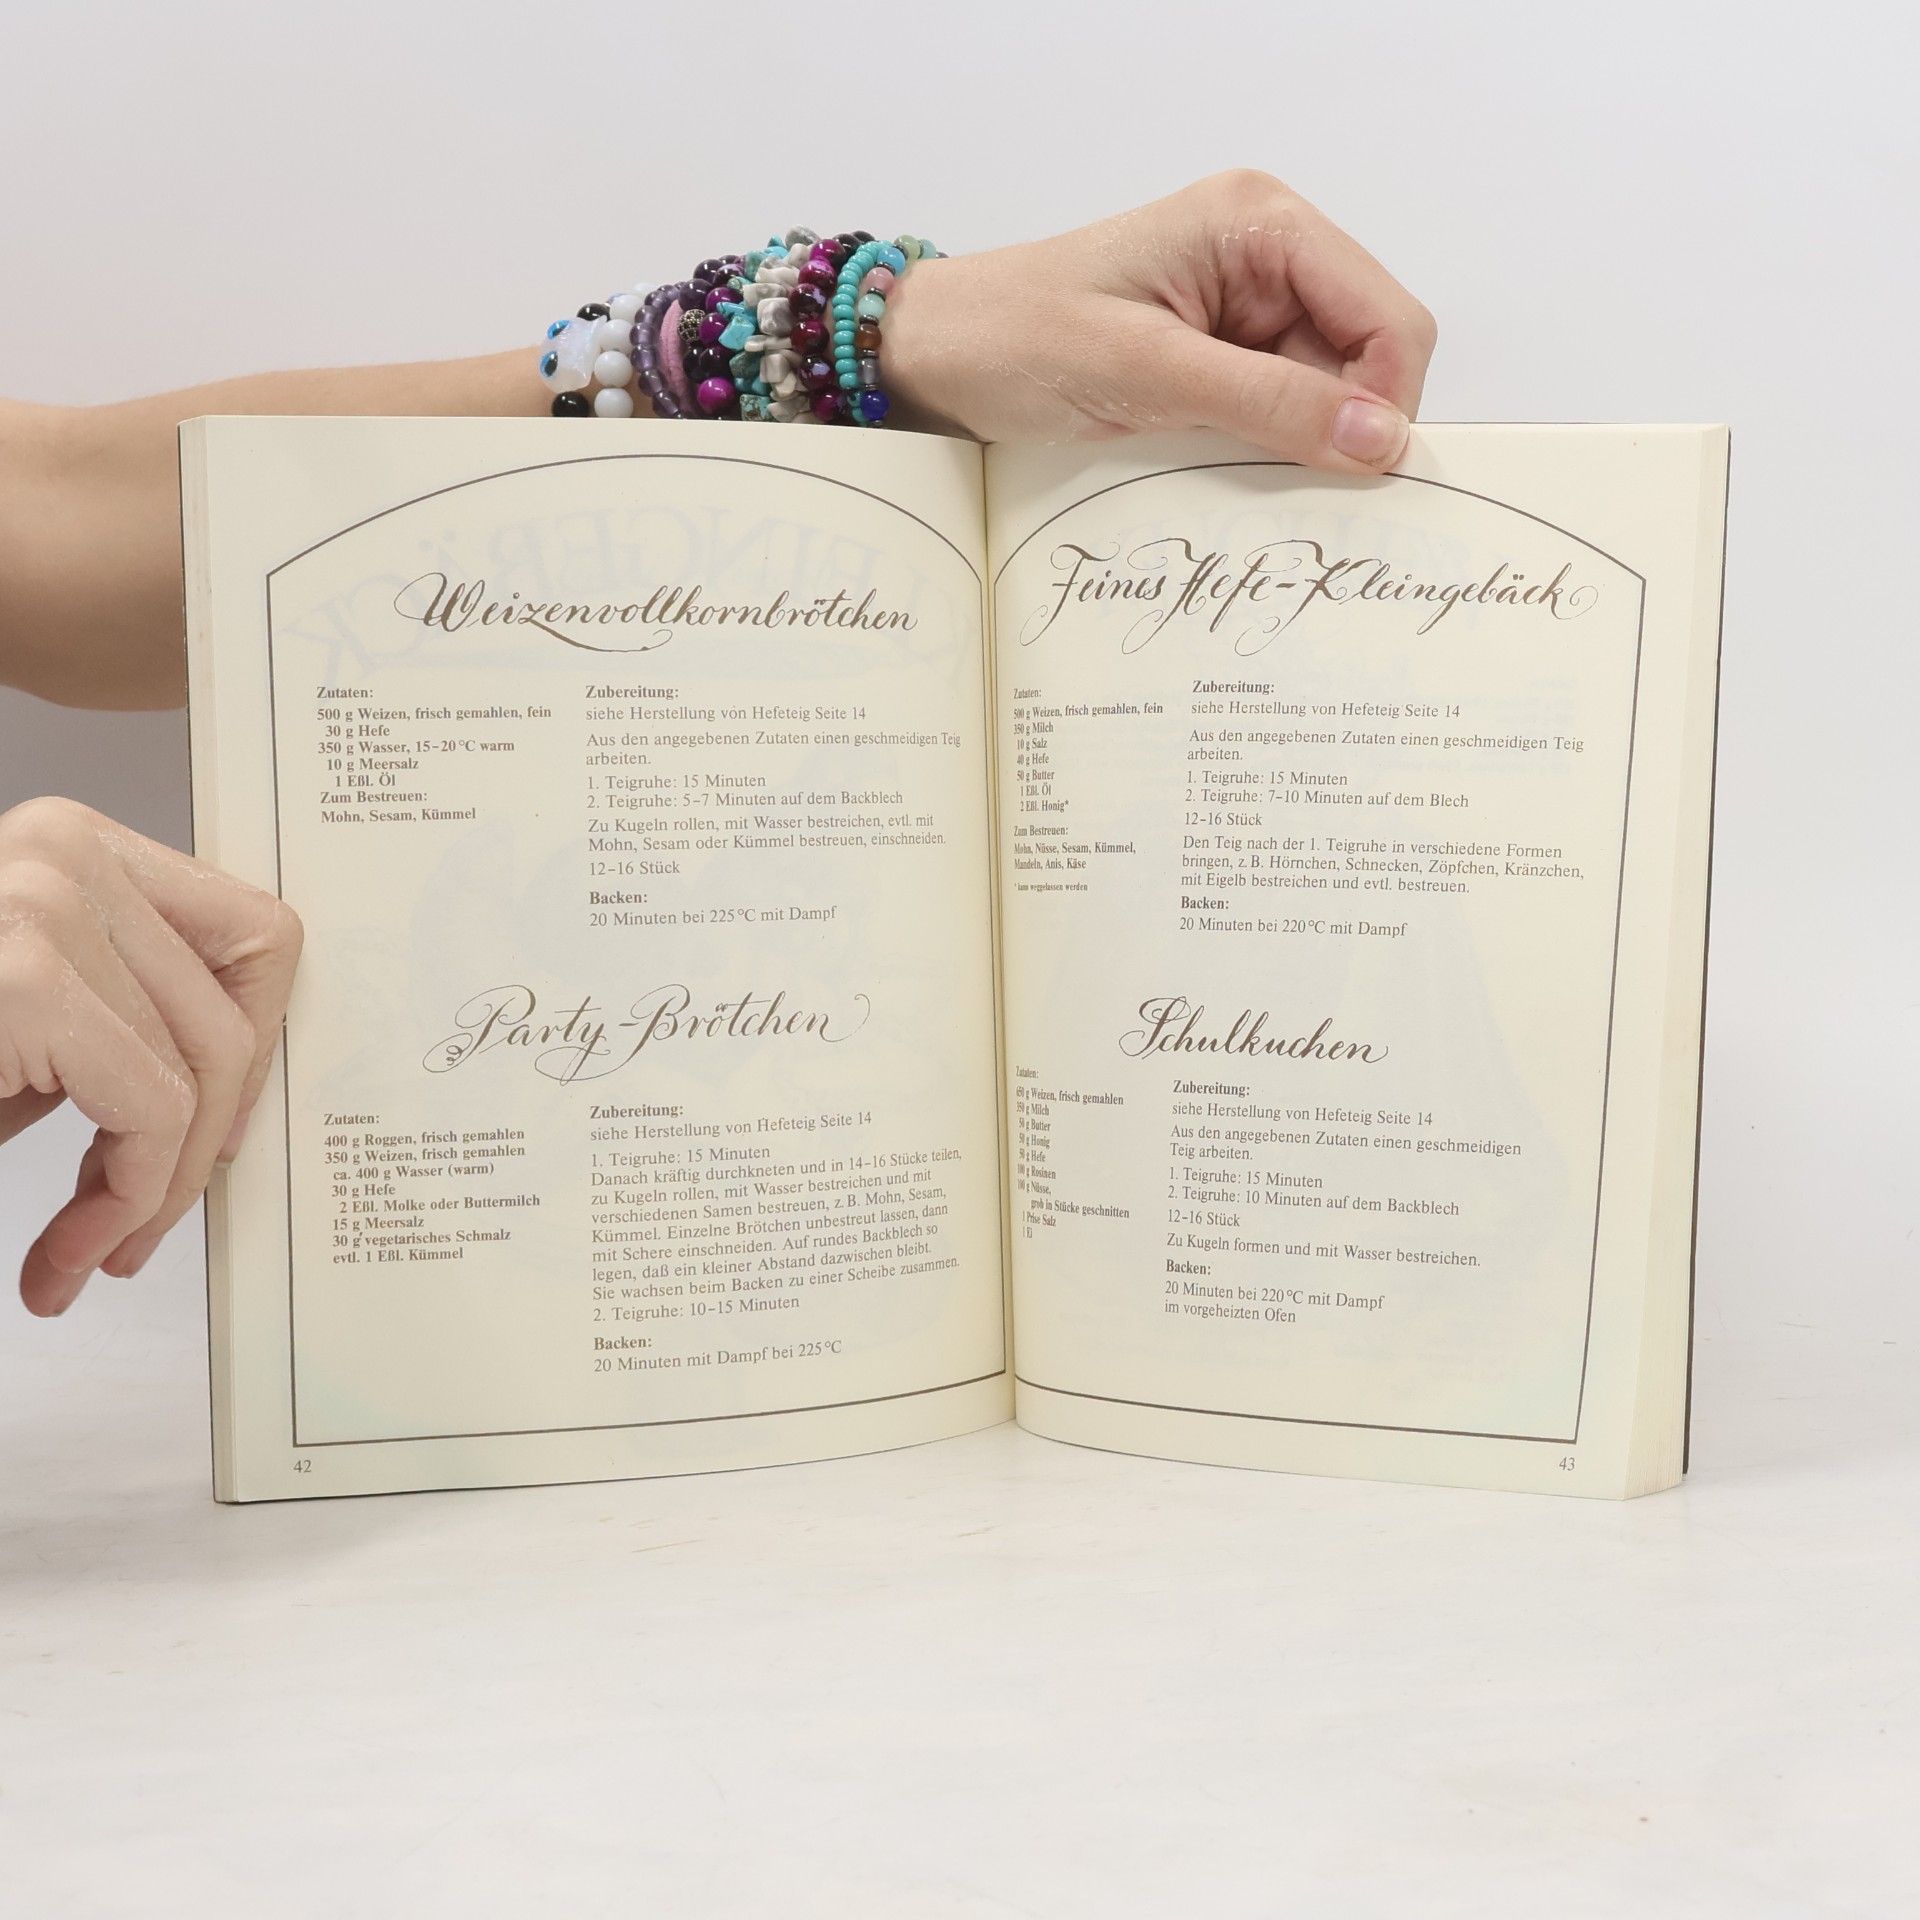 Weizenvollkornbrötchen
Zutaten:
500 g Weizen, frisch gemahlen, fein
30 g Hefe
350 g Wasser, 15–20 °C warm
10 g Meersalz
1 Eßl. Öl
Zum Bestreuen:
Mohn, Sesam, Kümmel
Zubereitung:
siehe Herstellung von Hefeteig Seite 14
Aus den angegebenen Zutaten einen geschmeidigen Teig
arbeiten.
1. Teigruhe: 15 Minuten
2. Teigruhe: 5–7 Minuten auf dem Backblech
Zu Kugeln rollen, mit Wasser bestreichen, evtl. mit
Mohn, Sesam oder Kümmel bestreuen, einschneiden.
12–16 Stück
Backen:
20 Minuten bei 225 °C mit Dampf
Party-Brötchen
Zutaten:
400 g Roggen, frisch gemahlen
350 g Weizen, frisch gemahlen
ca. 400 g Wasser (warm)
30 g Hefe
2 Eßl. Molke oder Buttermilch
15 g Meersalz
30 g vegetarisches Schmalz
evtl. 1 Eßl. Kümmel
Zubereitung:
siehe Herstellung von Hefeteig Seite 14
1. Teigruhe: 15 Minuten
Danach kräftig durchkneten und in 14–16 Stücke teilen,
zu Kugeln rollen, mit Wasser bestreichen und mit
verschiedenen Samen bestreuen, z. B. Mohn, Sesam,
Kümmel. Einzelne Brötchen unbestreut lassen, dann
mit Schere einschneiden. Auf rundes Backblech so
legen, daß ein kleiner Abstand dazwischen bleibt.
Sie wachsen beim Backen zu einer Scheibe zusammen.
2. Teigruhe: 10–15 Minuten
Backen:
20 Minuten mit Dampf bei 225 °C
42
Feines Hefe-Kleingebäck
Zutaten:
500 g Weizen, frisch gemahlen, fein
350 g Milch
10 g Salz
40 g Hefe
50 g Butter
1 Eßl. Öl
2 Eßl. Honig*
Zum Bestreuen:
Mohn, Nüsse, Sesam, Kümmel,
Mandeln, Anis, Käse
* kann weggelassen werden
Zubereitung:
siehe Herstellung von Hefeteig Seite 14
Aus den angegebenen Zutaten einen geschmeidigen Teig
arbeiten.
1. Teigruhe: 15 Minuten
2. Teigruhe: 7–10 Minuten auf dem Blech
12–16 Stück
Den Teig nach der 1. Teigruhe in verschiedene Formen
bringen, z. B. Hörnchen, Schnecken, Zöpfchen, Kränzchen,
mit Eigelb bestreichen und evtl. bestreuen.
Backen:
20 Minuten bei 220 °C mit Dampf
Schulkuchen
Zutaten:
650 g Weizen, frisch gemahlen
350 g Milch
50 g Butter
50 g Honig
50 g Hefe
100 g Rosinen
100 g Nüsse,
grob in Stücke geschnitten
1 Prise Salz
1 Ei
Zubereitung:
siehe Herstellung von Hefeteig Seite 14
Aus den angegebenen Zutaten einen geschmeidigen
Teig arbeiten.
1. Teigruhe: 15 Minuten
2. Teigruhe: 10 Minuten auf dem Backblech
12–16 Stück
Zu Kugeln formen und mit Wasser bestreichen.
Backen:
20 Minuten bei 220 °C mit Dampf
im vorgeheizten Ofen
43